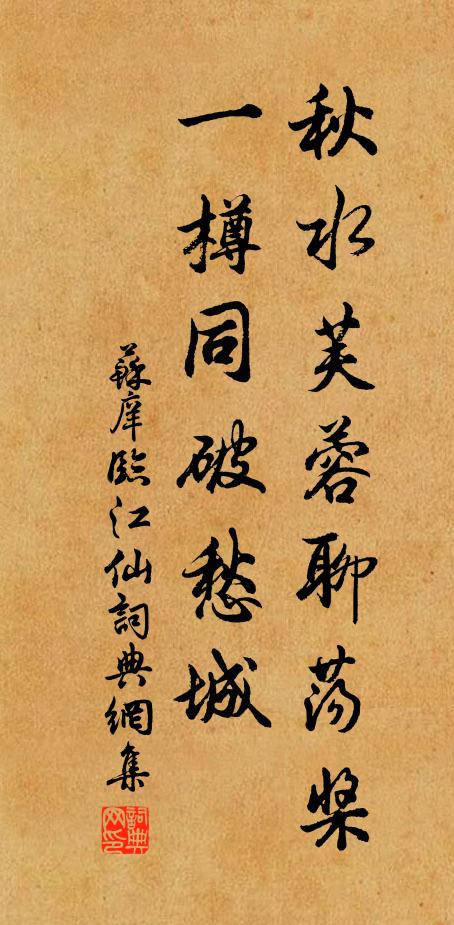 秋水芙蓉聊荡槳
一樽同破愁城
蘇庠臨江仙詞典網集
詞典网印